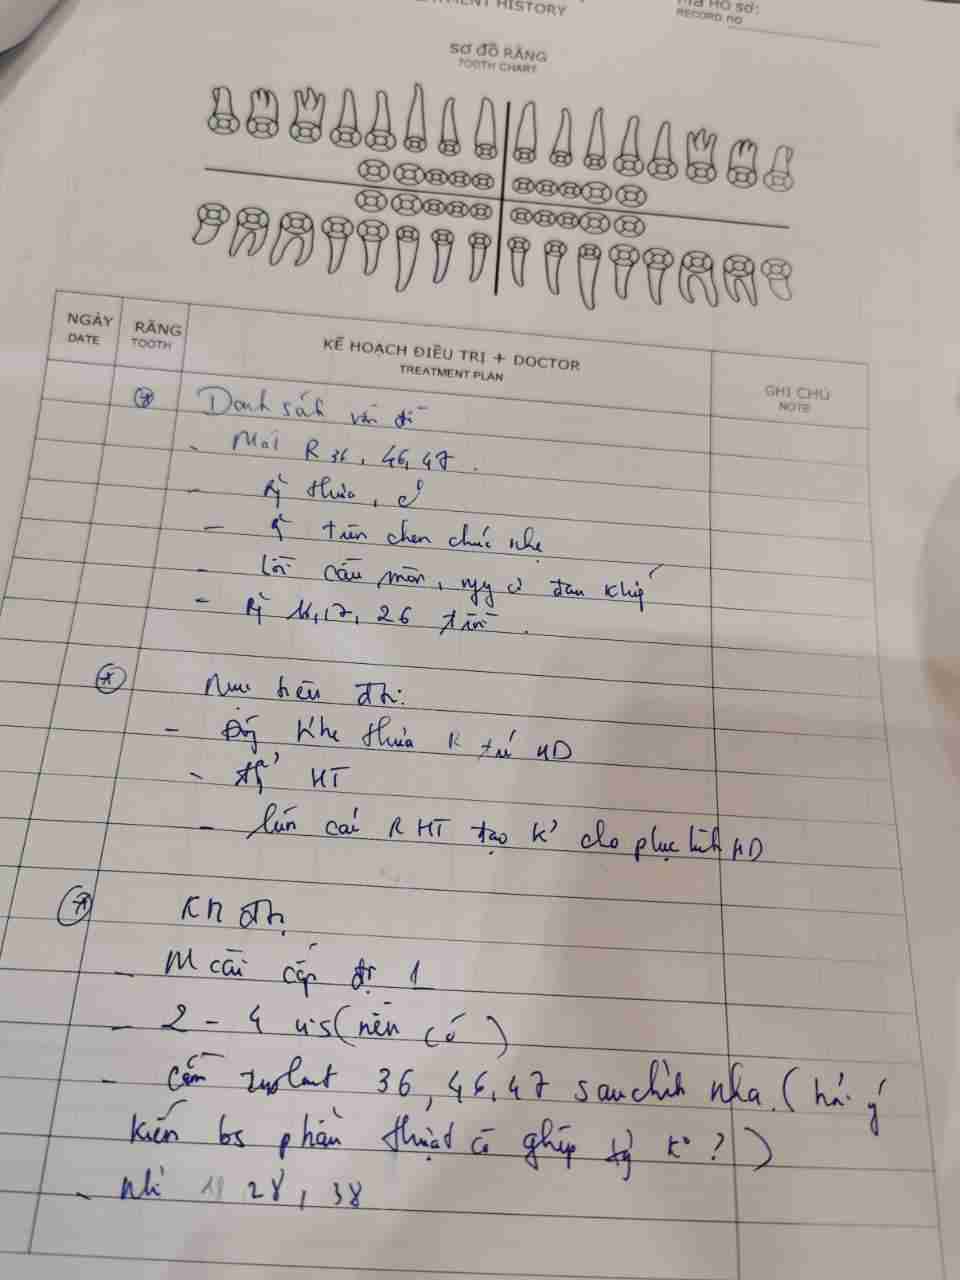 TMENT HISTORY
Mã Hồ sơ:
RECORD NO
SƠ ĐỒ RĂNG
TOOTH CHART
NGÀY
DATE
RĂNG
TOOTH
KẾ HOẠCH ĐIỀU TRỊ + DOCTOR
TREATMENT PLAN
GHI CHÚ
NOTE
Danh sách vấn đề
- Mất R 36, 46, 47.
- thưa,
- trên chen chúc nhẹ
- cắn mòn, nguy cơ đau khớp
- 16, 17, 26 trồi.
Mục tiêu đtr:
- Đóng khe thưa R trước HD
- HT
- lún các R HT tạo K° cho phục hình HD
KH đtr
- M cài cấp độ 1
- 2 - 4 vis (nên có)
- cắm Implant 36, 46, 47 sau chỉnh nha. (hỏi ý
kiến bs phẫu thuật có ghép K°?)
- Nhổ 28, 38